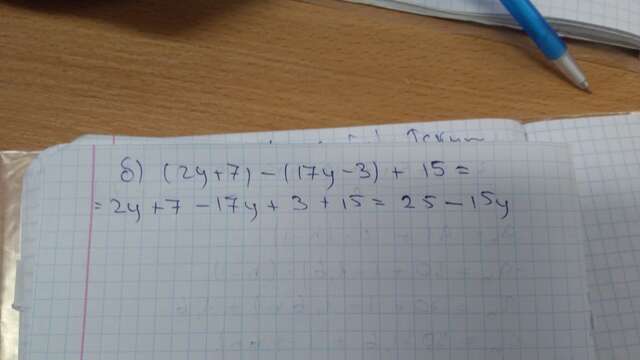 б) (2y+7) - (17y-3) + 15 =
= 2y + 7 - 17y + 3 + 15 = 25 - 15y